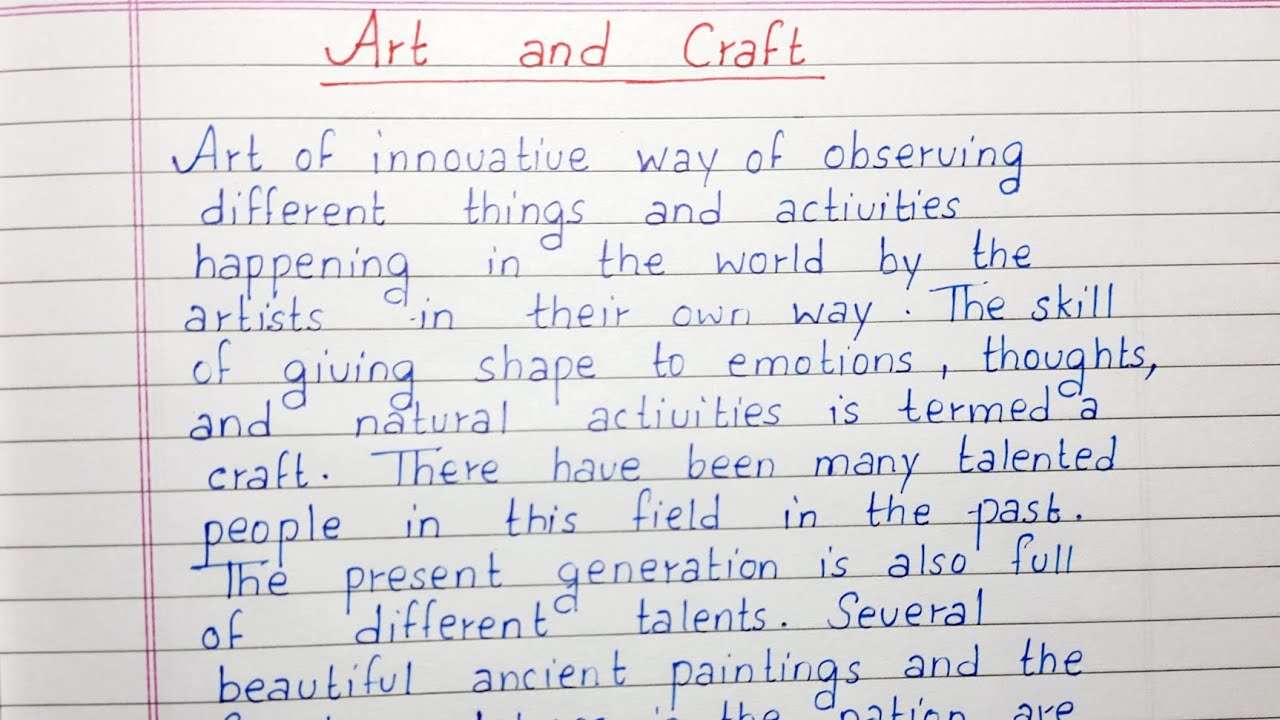 Art and Craft
Art of innovative way of observing
different things and activities
happening in the world by the
artists in their own way. The skill
of giving shape to emotions, thoughts,
and natural activities is termed a
craft. There have been many talented
people in this field in the past.
The present generation is also full
of different talents. Several
beautiful ancient paintings and the
in the nation are